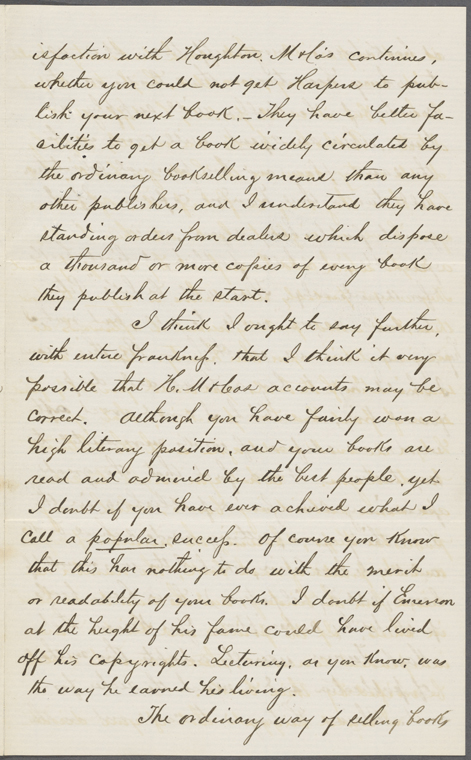 isfaction with Houghton, M & Co's continues,
whether you could not get Harpers to pub-
lish your next book. - They have better fa-
cilities to get a book widely circulated by
the ordinary bookselling means than any
other publishers, and I understand they have
standing orders from dealers which dispose
a thousand or more copies of every book
they publish at the start.
I think I ought to say further,
with entire frankness, that I think it very
possible that H. M & Cos accounts may be
correct. Although you have fairly won a
high literary position, and your books are
read and admired by the best people, yet
I doubt if you have ever achieved what I
call a popular success. Of course you know
that this has nothing to do with the merit
or readability of your books. I doubt if Emerson
at the height of his fame could have lived
off his copyrights. Lecturing, as you know, was
the way he earned his living.
The ordinary way of selling books